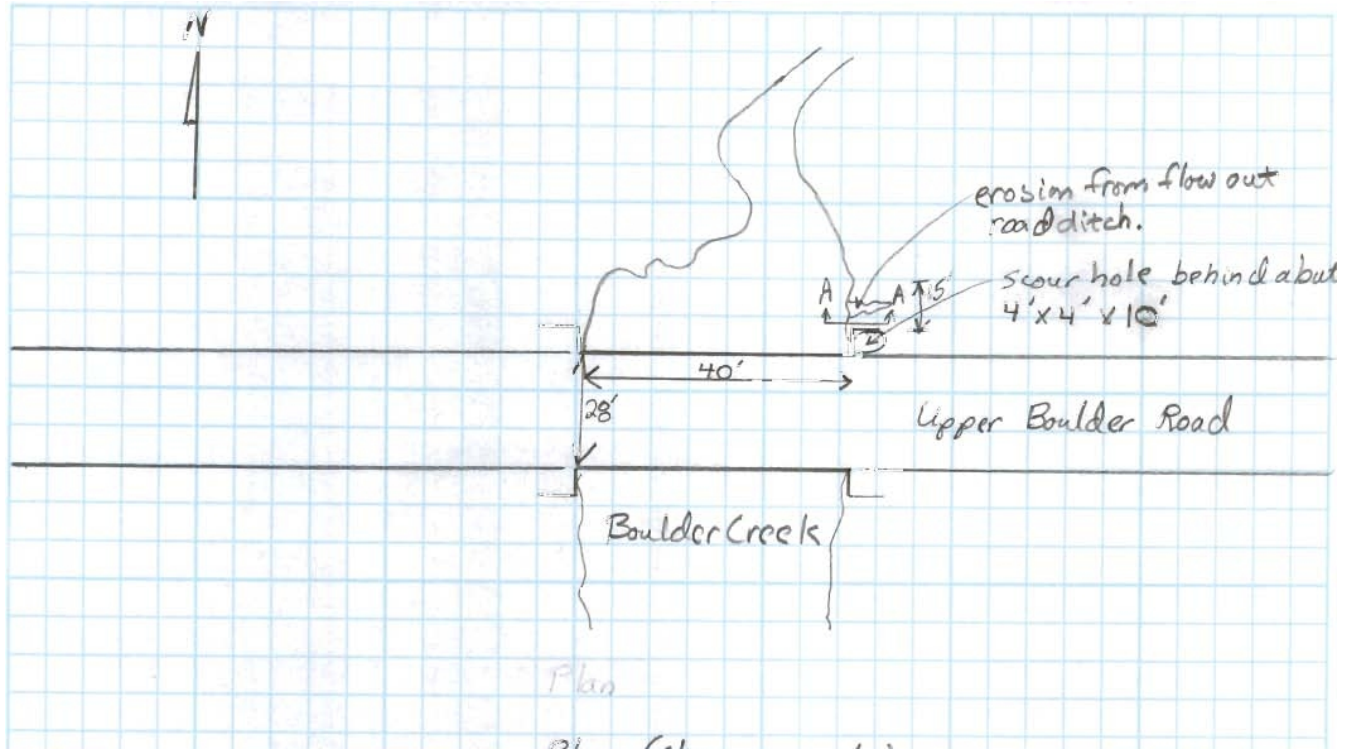 N
erosion from flow out
road ditch.
scour hole behind abut
4' x 4' x 10'
A A 15
40'
28'
Upper Boulder Road
Boulder Creek
Plan
Plan